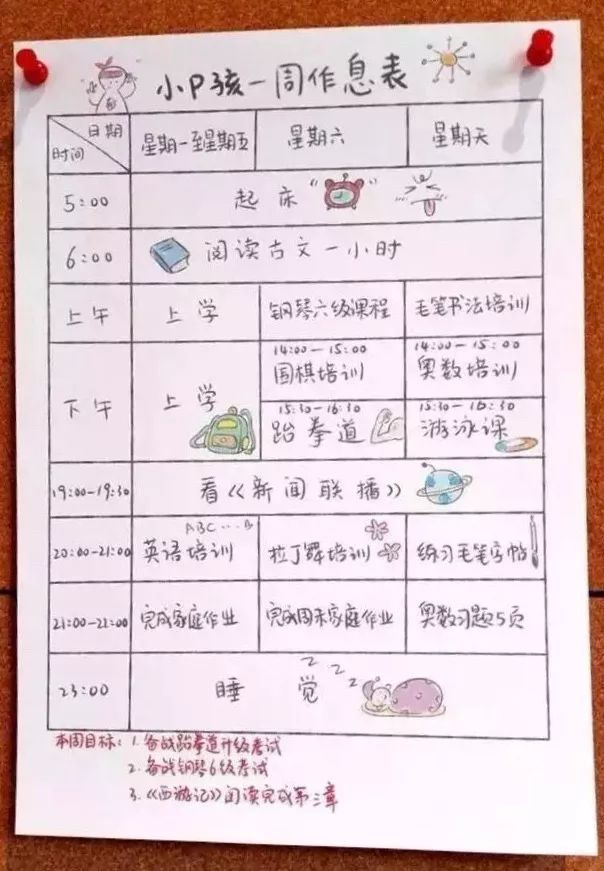 小P孩一周作息表
日期
时间
星期一至星期五 星期六 星期天
5:00 起床
6:00 阅读古文一小时
上午 上学 钢琴六级课程 毛笔书法培训
14:00—15:00 14:00—15:00
围棋培训 奥数培训
下午 上学
15:30—16:30 15:30—16:30
跆拳道 游泳课
19:00-19:30 看《新闻联播》
ABC...B
20:00-21:00 英语培训 拉丁舞培训 练习毛笔字帖
21:00-22:00 完成家庭作业 完成周末家庭作业 奥数习题5页
23:00 睡觉 zzz
本周目标: 1.备战跆拳道升级考试
2.备战钢琴6级考试
3.《西游记》阅读完成第三章